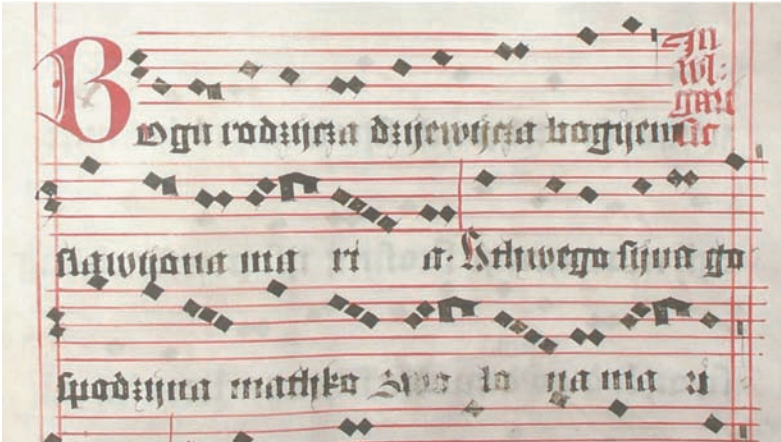 Bogu rodzijcza dzijewijcza bogijem
slawijona ma ri a· U thwego sijna go
spodzijna mathko swo la na ma ri